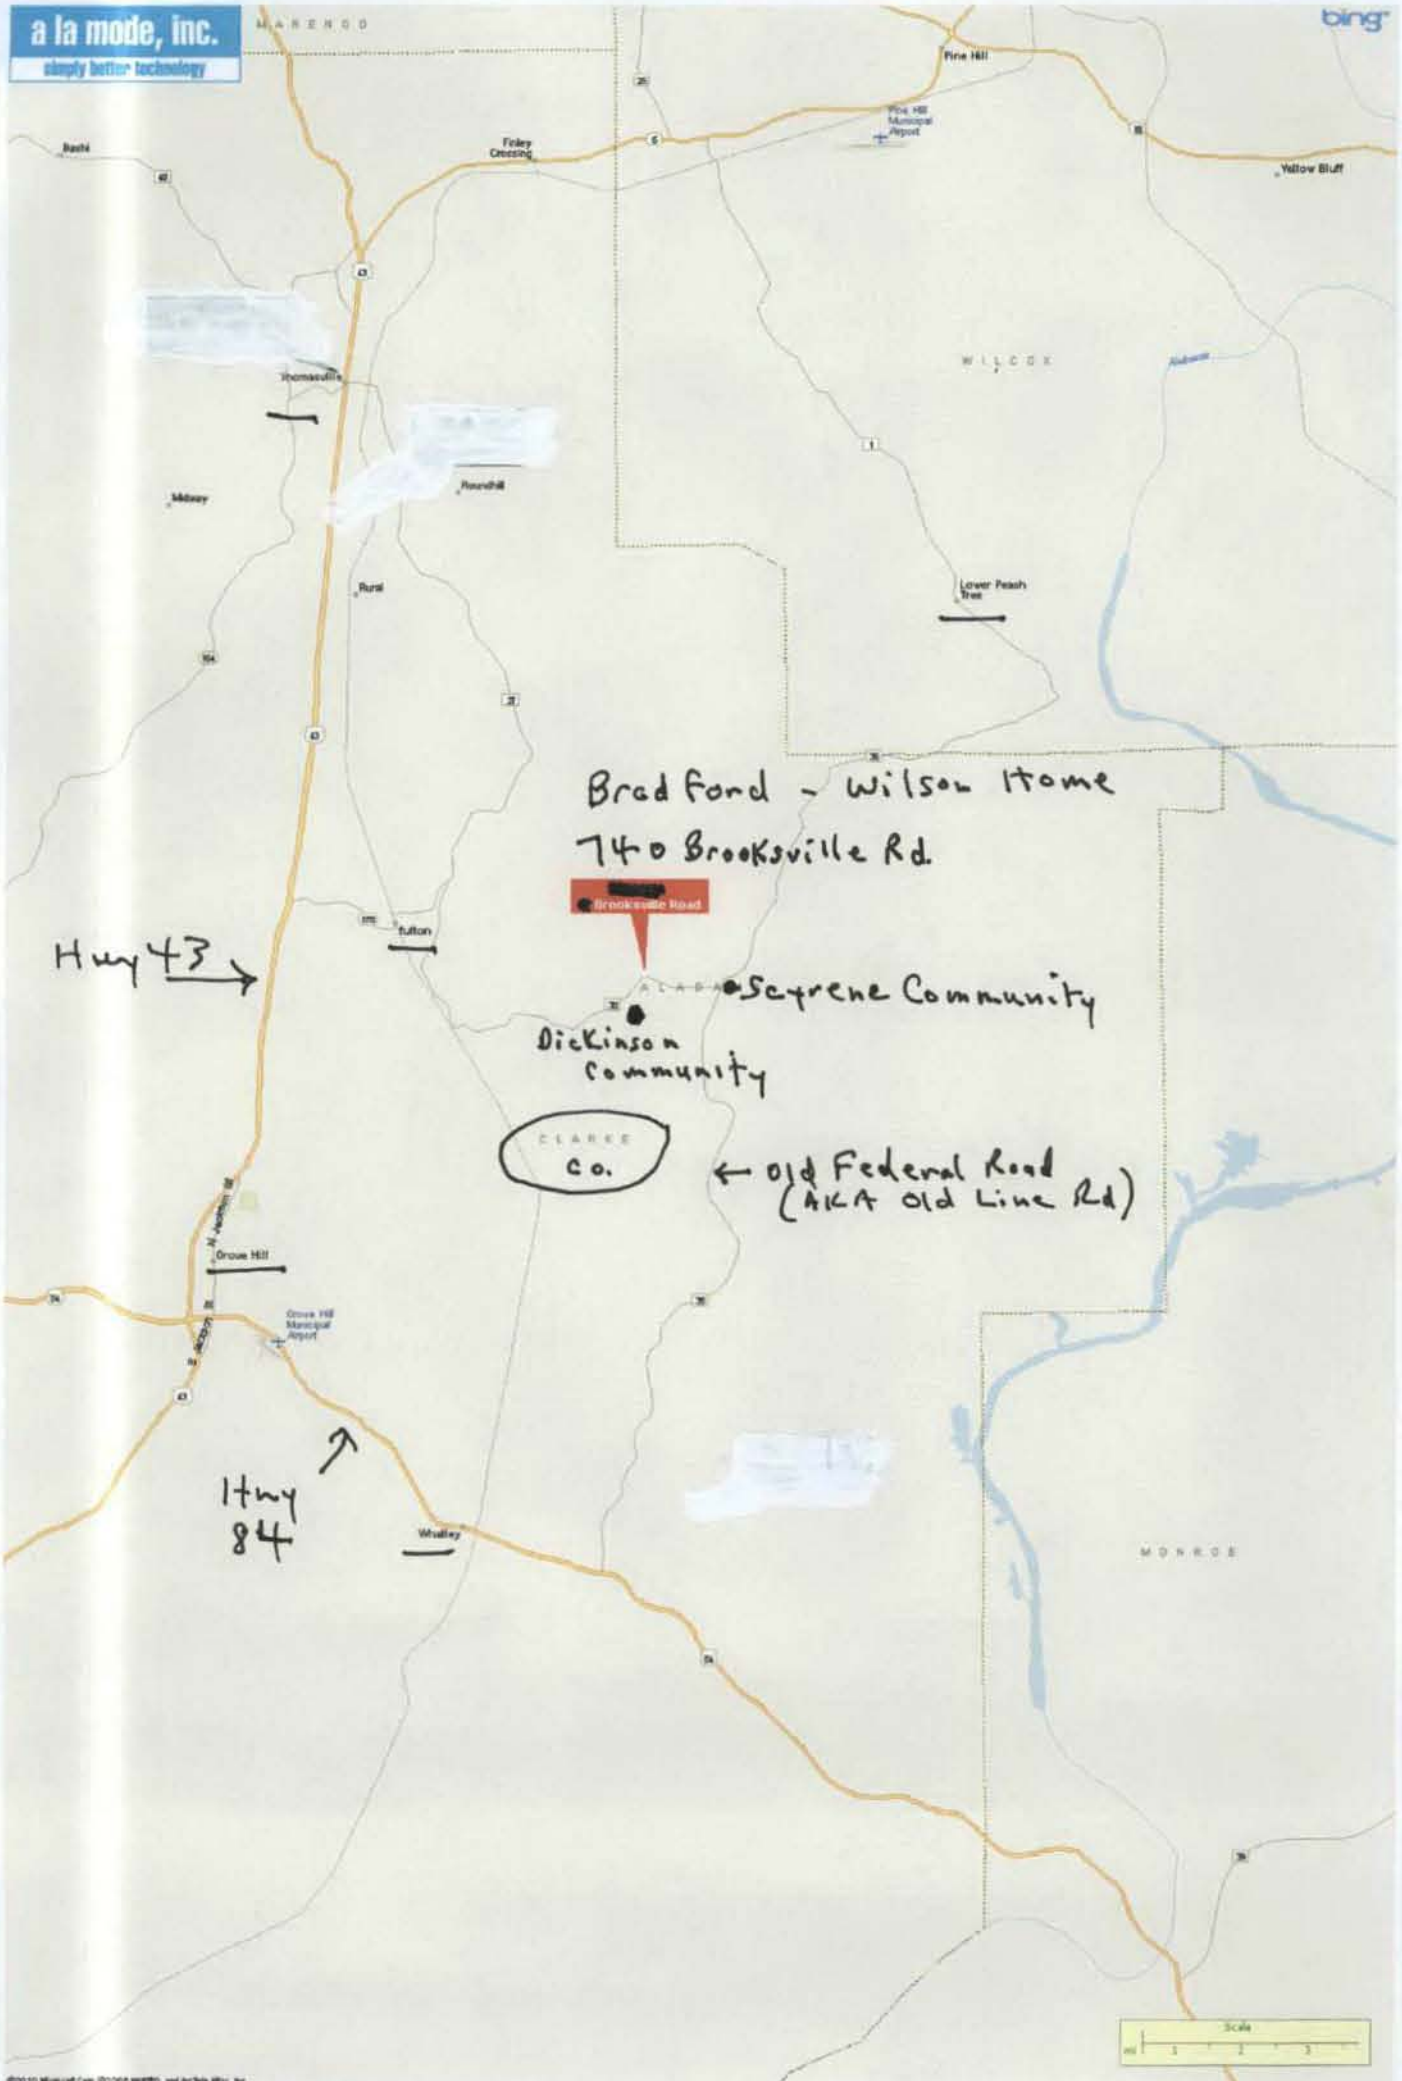 a la mode, inc.
simply better technology
bing
MARENGO
Pine Hill
25
Pine Hill
Municipal
Airport
Bashi
Finley
Crossing
5
Yellow Bluff
43
WILCOX
Alabama
Thomasville
1
Midway
Roundhill
Rural
Lower Peach
Tree
43
Bradford - Wilson Home
740 Brooksville Rd.
Brooksville Road
fulton
Hwy 43
ALABA
Scyrene Community
Dickinson
Community
CLARKE
Co.
Old Federal Road
(AKA Old Line Rd)
N Jackson St
Grove Hill
84
Grove Hill
Municipal
Airport
43
Hwy
84
Whatley
MONROE
84
Scale
mi 1 2 3